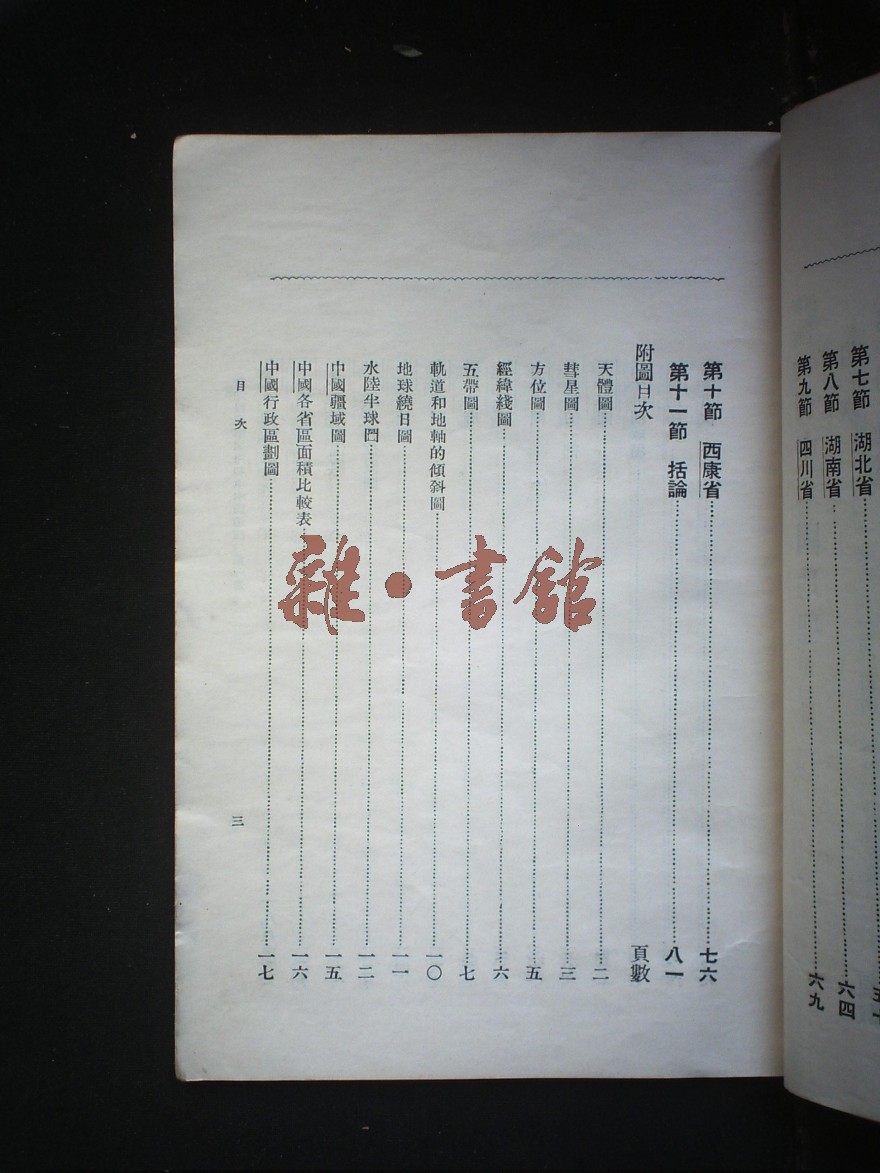 第七節 湖北省
第八節 湖南省 六四
第九節 四川省 六九
第十節 西康省 七六
第十一節 括論 八一
附圖目次 頁數
天體圖 二
彗星圖 三
方位圖 五
經緯綫圖 六
五帶圖 七
軌道和地軸的傾斜圖 一〇
地球繞日圖 一一
水陸半球圖 一二
中國疆域圖 一五
中國各省區面積比較表 一六
中國行政區劃圖 一七
目次 三
雜·書館